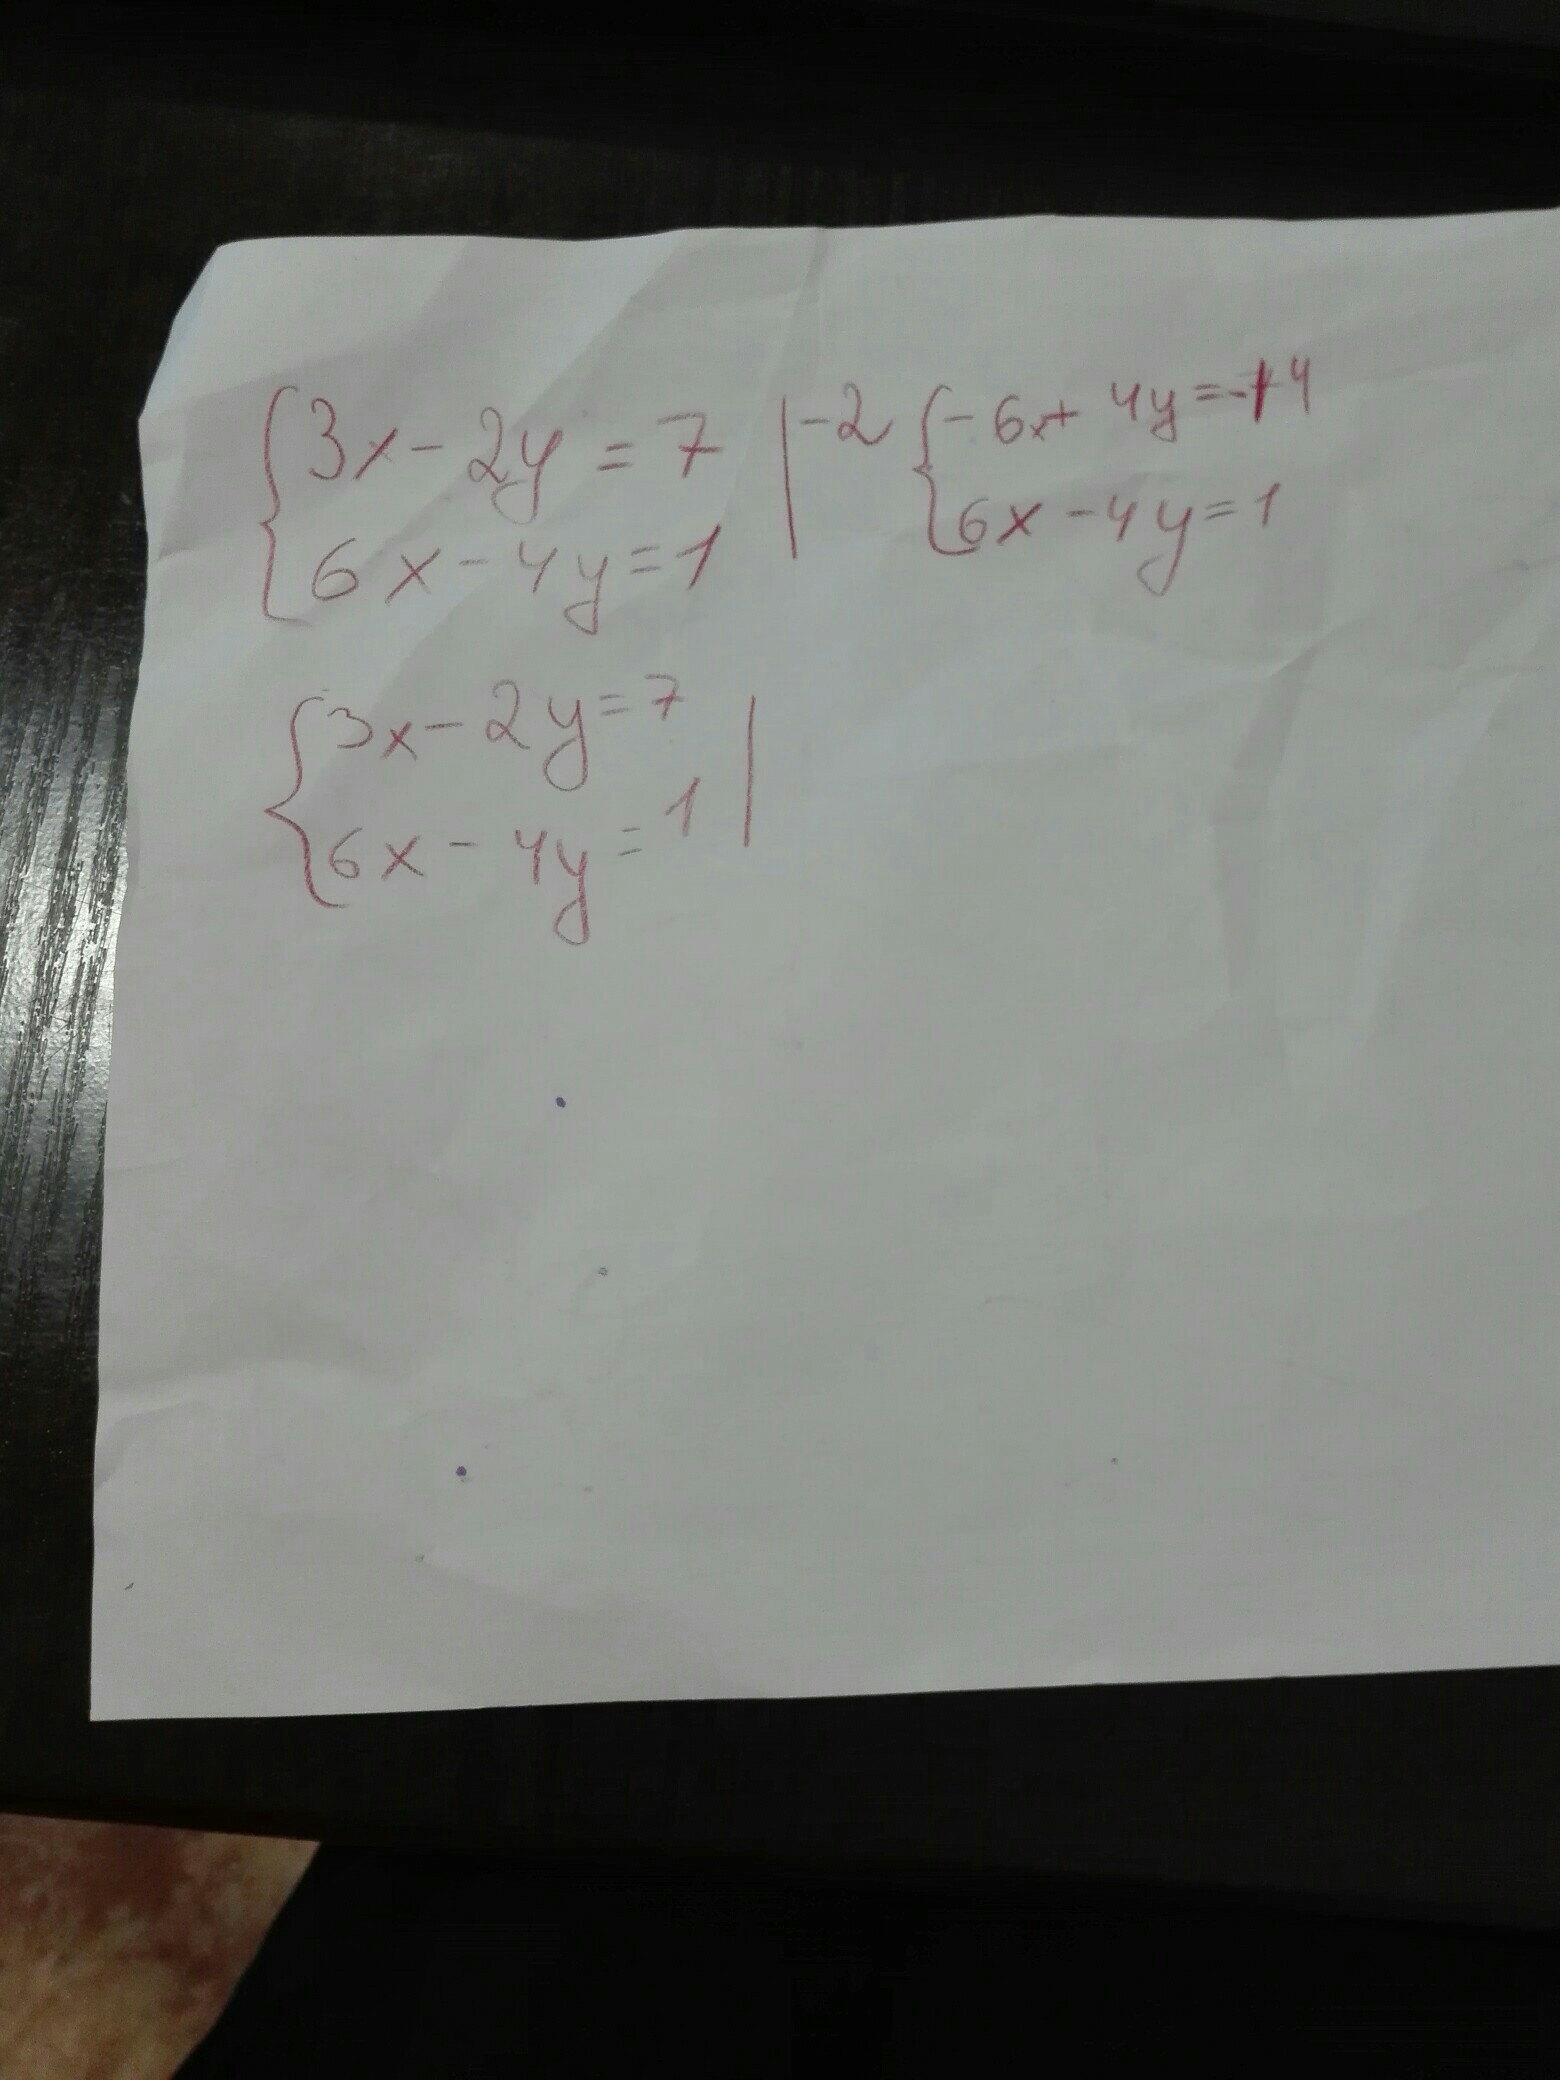 3x - 2y = 7 | -2 { -6x + 4y = -14
6x - 4y = 1 | 6x - 4y = 1
{ 3x - 2y = 7 |
6x - 4y = 1